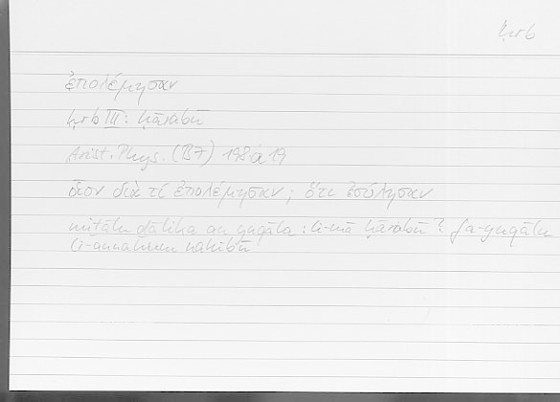 ḥrb
ἐπολέμησαν
ḥrb III: ḥārabū
Arist. Phys. (B7) 198a19
οἷον διὰ τί ἐπολέμησαν; ὅτι ἐσύλησαν
miṯālu ḏālika an yuqāla: li-mā ḥārabū? fa-yuqālu
li-annahum nahabū